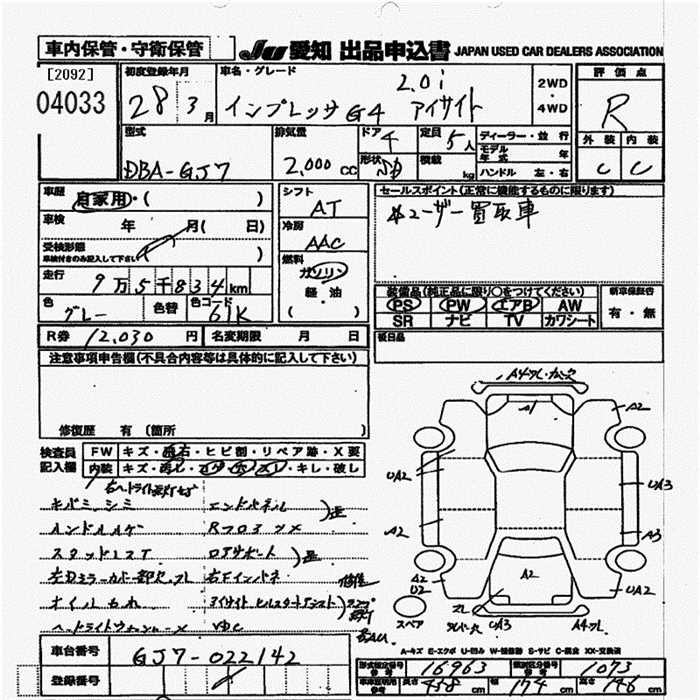 車内保管・守衛保管
JU 愛知 出品申込書 JAPAN USED CAR DEALERS ASSOCIATION
[2092]
04033
初度登録年月
28 3月
車名・グレード
2.0i
インプレッサG4 アイサイト
2WD・4WD
評価点
R
外装 内装
C C
型式
DBA-GJ7
排気量
2,000cc
ドア 4
形状
定員 5人
積載 kg
ディーラー・並行
モデル年式 年
ハンドル 左・右
車歴 自家用・( )
車検 年 月( 日)
受検形態
車検付きのみ記入して下さい ( )
走行 9万5千834km
色 グレー 色替 色コード 61K
シフト
AT
冷房
AAC
燃料
ガソリン
軽・油
( )
セールスポイント(正常に機能するものに限ります)
*ユーザー買取車
装備品(純正品に限り○をつけてください)
PS PW エアB AW
SR ナビ TV カワシート
新車保証書
有・無
R券 12,030円 名変期限 月 日
後日品
注意事項申告欄(不具合内容等は具体的に記入して下さい)
修復歴 有 (箇所 )
検査員記入欄
FW キズ・飛石・ヒビ割・リペア跡・X要
内装 キズ・汚れ・コゲ・穴・スレ・キレ・破し
キバミ、シミ エンドパネル
ハンドルスレ Rフロア
スタッドレスT ロアサポート
オイルもれ アイサイト ヒルスタートアシスト
VDC
A4
A1
A2
UA2
UA3
A2
A3
A2
U2
UA2
A2
UA3
スペア
A-キズ E-エクボ U-凹み W-補修跡 S-サビ C-腐食 XX-交換済
車台番号 GJ7-022142
登録番号
形式指定番号 16963 類別区分番号 1073
車庫証明用 長さ 458cm 幅 174cm 高さ 146cm